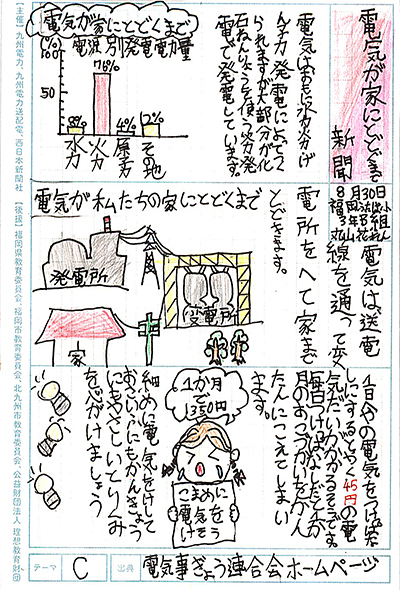 電気が家にとどくまで
新聞
8月30日
電気はおもに水力、火力、げ
ん子力発電によってつく
られますが大部分が化
石ねんりょうを使う火力発
電で発電しています。
電気が家にとどくまで
電源別発電電力量
(%)
100
50
8%
76%
4%
12%
水力
火力
原子力
その他
電気は送電
線を通って変
電所をへて家まで
とどきます。
電気が私たちの家にとどくまで
発電所
変電所
家
1日分の電気をつけっぱな
しにするじゃく45円の電
気だいがかかるそうです。
毎日つけっぱなしだと1か
月のおこづかいをかん
たんにこえてしまい
ます。
1か月
で
1350円
こまめに
電気を
けそう
細めに電気をけして
おさいふにもかんきょう
にもやさしいとりくみ
を心がけましょう
テーマ
C
出典
電気事ぎょう連合会ホームページ
【主催】九州電力、九州電力送配電、西日本新聞社 【後援】福岡県教育委員会、福岡市教育委員会、北九州市教育委員会、公益財団法人 理想教育財団